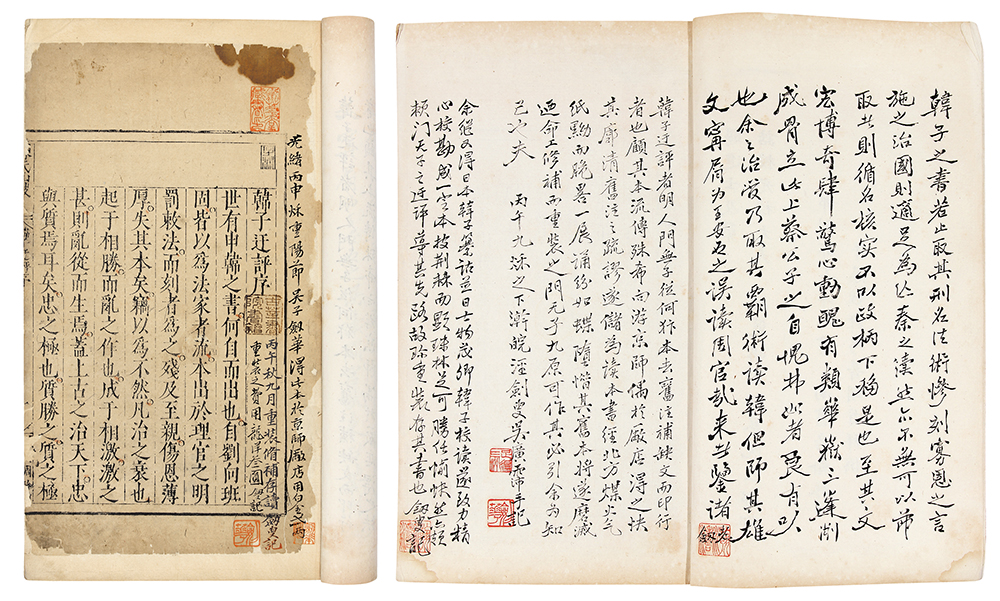 光緒丙申秋重陽節吳子劍華得此本於京師廠店用白金二兩
韓子迂評序
丙午秋九月重裝脩補存讀劍叟記
重裝之費用龍洋叁圓並記
世有申韓之書何自而出也自劉向班
固皆以為法家者流本出於理官之明
罰敕法而刻者為之殘及至親傷恩薄
厚失其本矣竊以為不然凡治之衰也
起于相勝而亂之作也成于相激激之
甚則亂從而生焉蓋上古之治天下忠
與質焉耳矣忠之極也質勝之質之極
韓子之書若止取其刑名法術慘刻寡恩之言
施之治國則適足為亡秦之續然亦不無可以節
取者則循名核實不以政柄下移是也至其文
宏博奇肆驚心動魄有類華嶽三峰削
成骨立此上蔡公子之自愧弗如者良有以
也余之治學乃取其霸術讀韓但師其雄
文寧局為王安石之誤讀周官哉來者鑒諸
韓子迂評者明人門無子從何犿本去舊注補缺文而印行
者也顧其本流傳殊希向游京師偶於廠店得之
其廓清舊注之疏謬遂儲為讀本書經北方煤火气
紙黝而脆畧一展誦紛如蝶墮惜其舊本將遂磨滅
迺命工修補而重裝之門无子九原可作其必引余為知
己次夫 丙午九秋之下澣皖涇劍叟吳廣霈三記
余繼又得日本韓子纂詁並日士物茂卿韓子校讀遂致力精
心校勘成一定本披荊棘而顯珠林足可勝任愉快然亦頗
門无子之迂評尊其先路故珍重裝存其書也 劍叟記